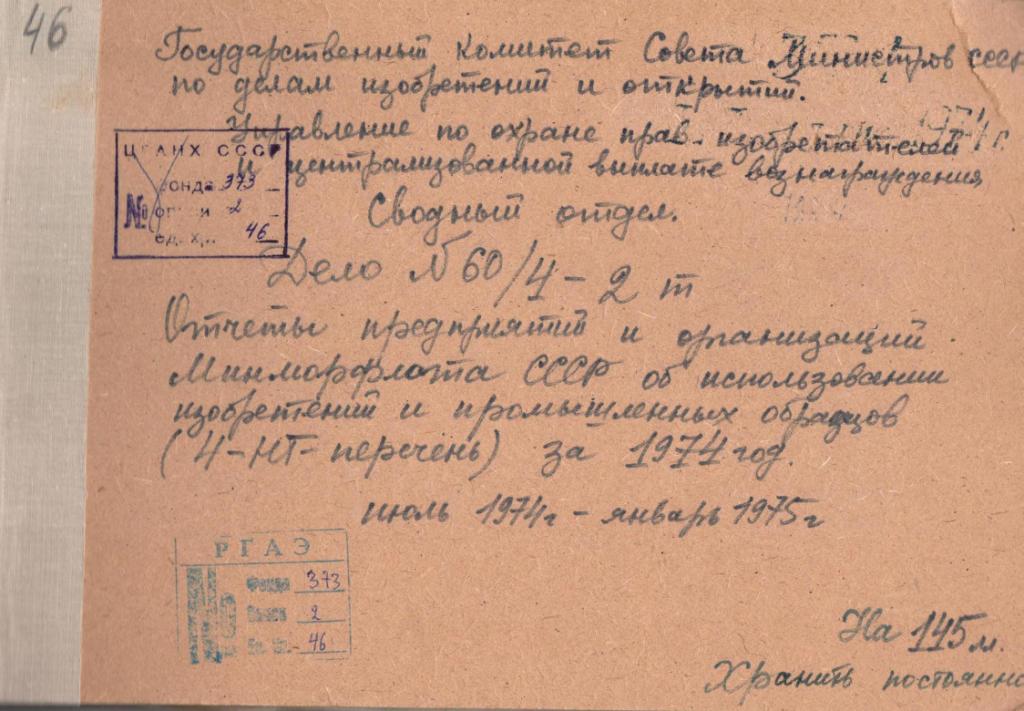 46
Государственный комитет Совета Министров СССР
по делам изобретений и открытий.
Управление по охране прав изобретателей
и централизованной выплате вознаграждения
Сводный отдел.
ЦГАНХ СССР
фонда 373
№ описи 2
ед. хр. 46
Дело №60/4-2 т
Отчеты предприятий и организаций
Минморфлота СССР об использовании
изобретений и промышленных образцов
(4-НТ-перечень) за 1974 год.
июль 1974г - январь 1975г
РГАЭ
Фонд 373
2
46
На 145 лл.
Хранить постоянно